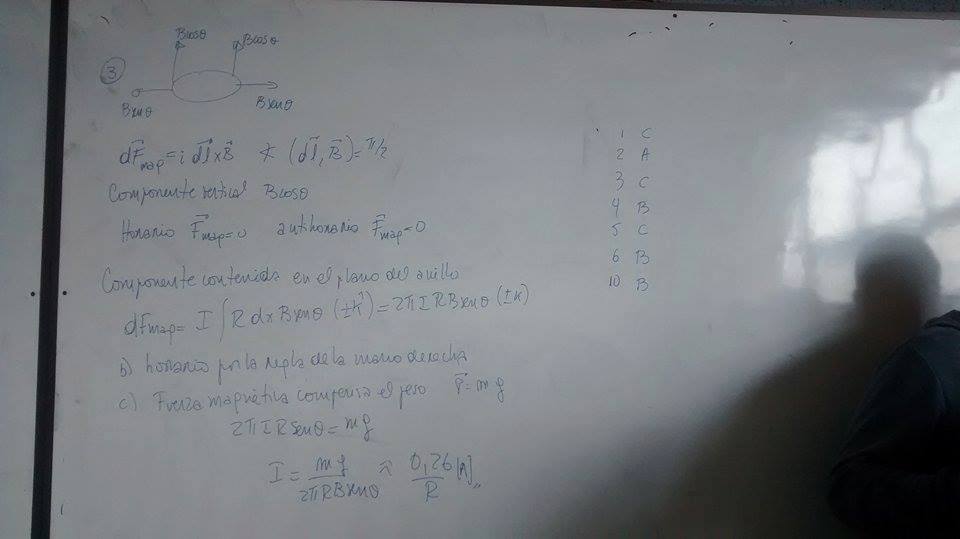 Bcosθ Bcosθ
3
Bsenθ Bsenθ
dF⃗map = i dl⃗ x B⃗ ∢ (dl⃗, B⃗) = π/2
Componente vertical Bcosθ
Horario F⃗map=0 antihorario F⃗map=0
Componente contenida en el plano del anillo
dFmap= I ∫ R dx Bsenθ (±k̂) = 2πIRBsenθ (±k)
b) horario por la regla de la mano derecha
c) Fuerza magnética compensa el peso P⃗=mg
2πIRsenθ = mg
I = mg / 2πRBsenθ ≈ 0,26 / R [A]
1 C
2 A
3 C
4 B
5 C
6 B
10 B